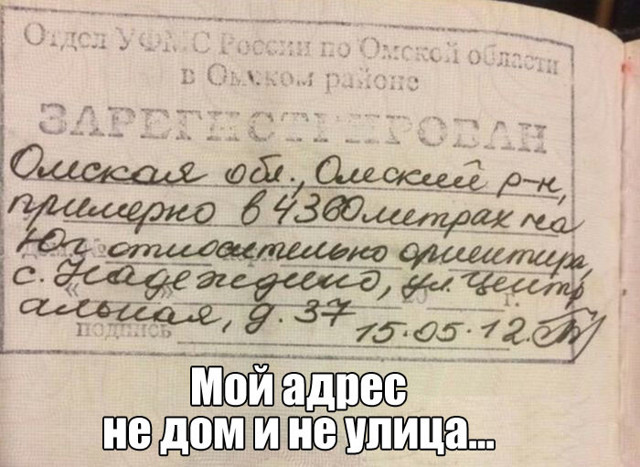 Отдел УФМС России по Омской области
в Омском районе
ЗАРЕГИСТРИРОВАН
Омская обл., Омский р-н,
примерно в 4360 метрах на
Юг относительно ориентира,
с. Надеждино, ул. Центр
альная, д. 37 15.05.12.
подпись
Мой адрес
не дом и не улица...